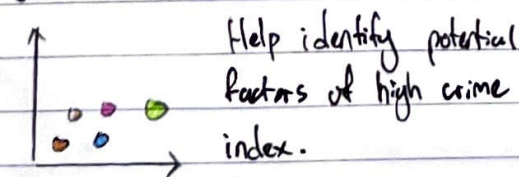 Help identify potential
factors of high crime
index.